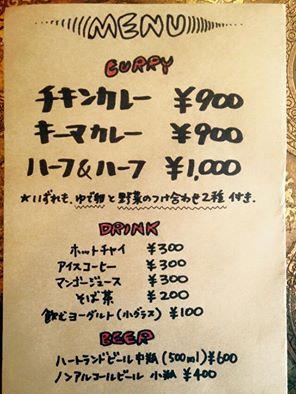 MENU
CURRY
チキンカレー ¥900
キーマカレー ¥900
ハーフ&ハーフ ¥1,000
★いずれも、ゆで卵と野菜のつけ合わせ2種付き.
DRINK
ホットチャイ ¥300
アイスコーヒー ¥300
マンゴージュース ¥300
そば茶 ¥200
飲むヨーグルト(小グラス) ¥100
BEER
ハートランドビール中瓶(500ml)¥600
ノンアルコールビール 小瓶 ¥400